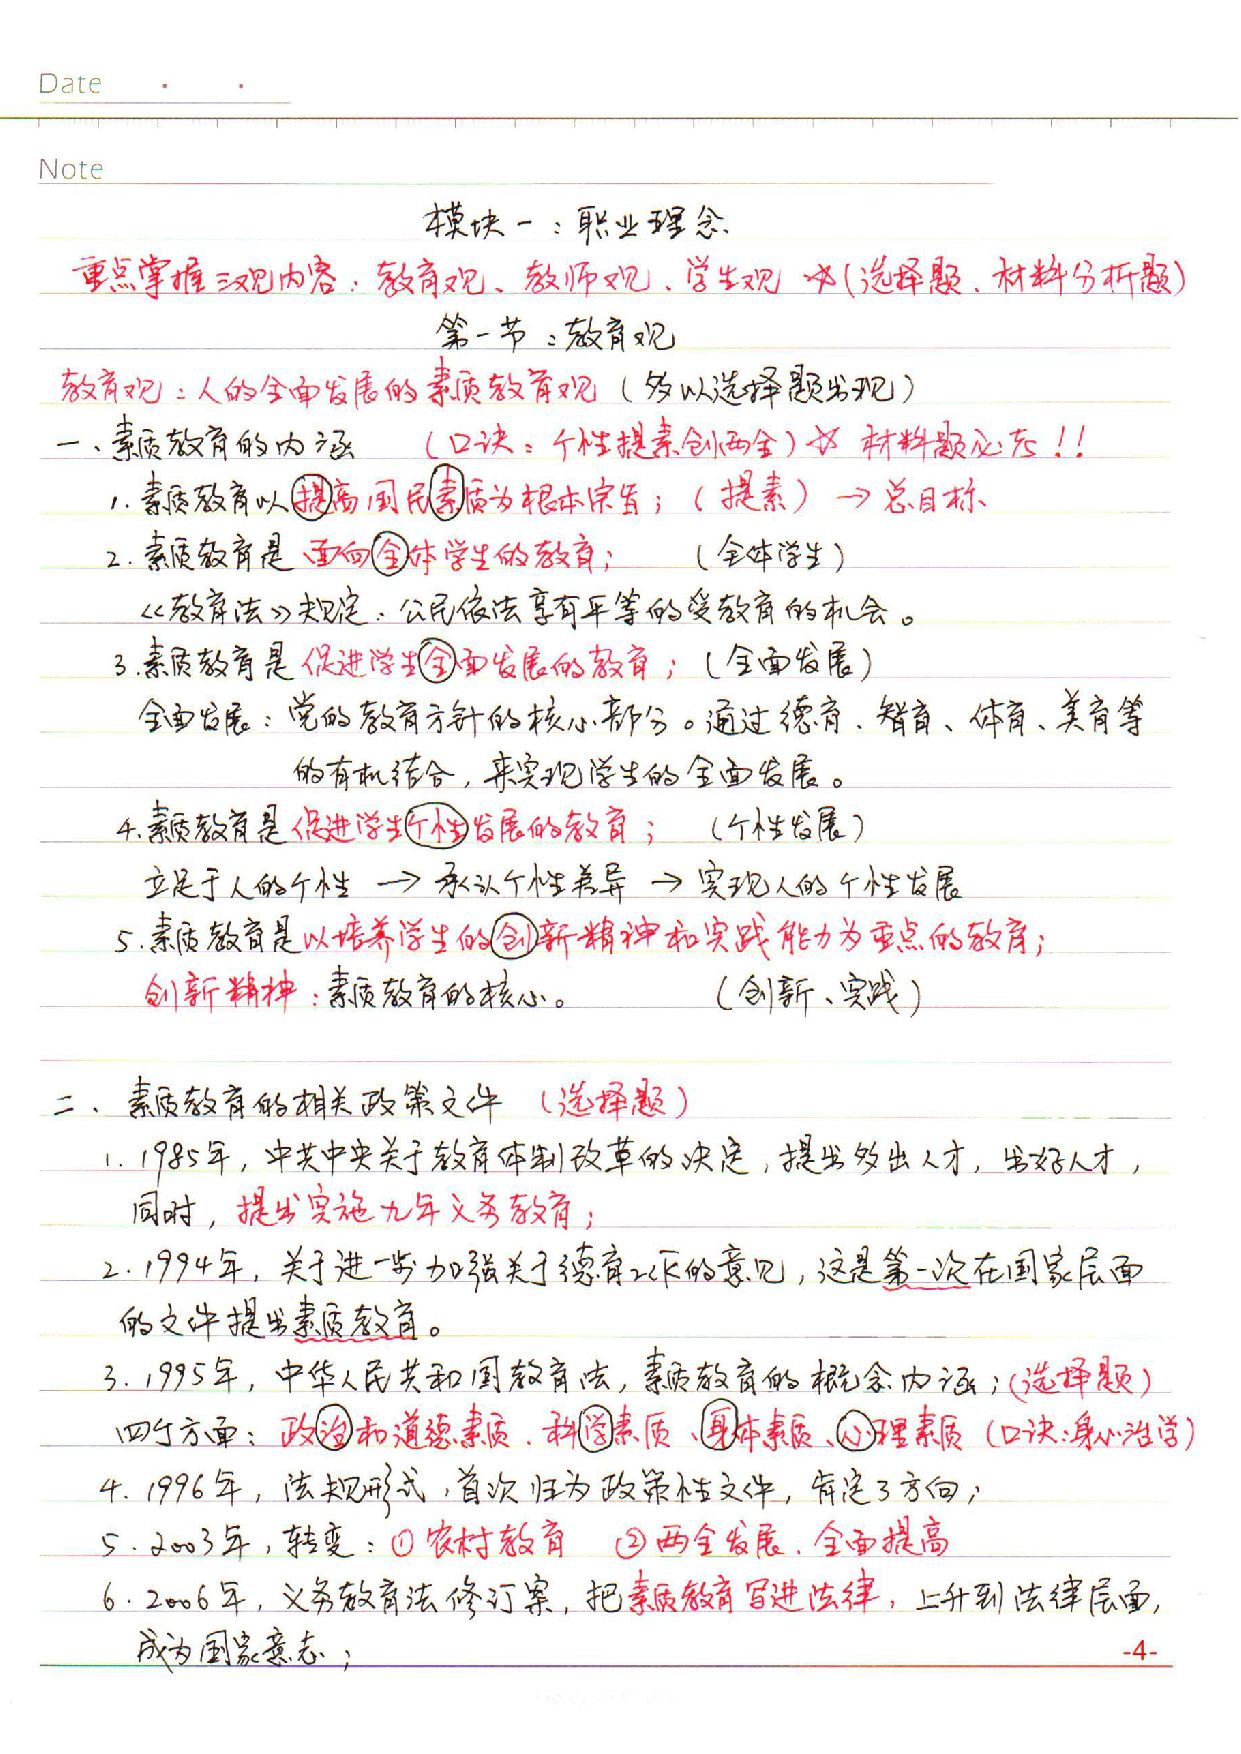 Date
Note
模块一：职业理念
重点掌握三观内容：教育观、教师观、学生观 ☆(选择题、材料分析题)
第一节：教育观
教育观：人的全面发展的素质教育观（多以选择题出现）
一、素质教育的内涵 （口诀：个性提素创两全）☆ 材料题必考!!
1. 素质教育以提高国民素质为根本宗旨；（提素）→ 总目标
2. 素质教育是面向全体学生的教育； （全体学生）
《教育法》规定：公民依法享有平等的受教育的机会。
3. 素质教育是促进学生全面发展的教育；（全面发展）
全面发展：党的教育方针的核心部分。通过德育、智育、体育、美育等
的有机结合，来实现学生的全面发展。
4. 素质教育是促进学生个性发展的教育； （个性发展）
立足于人的个性 → 承认个性差异 → 实现人的个性发展
5. 素质教育是以培养学生的创新精神和实践能力为重点的教育；
创新精神：素质教育的核心。 （创新、实践）
二、素质教育的相关政策文件 （选择题）
1. 1985年，中共中央关于教育体制改革的决定，提出多出人才，出好人才，
同时，提出实施九年义务教育；
2. 1994年，关于进一步加强关于德育工作的意见，这是第一次在国家层面
的文件提出素质教育。
3. 1995年，中华人民共和国教育法，素质教育的概念内涵；(选择题)
四个方面：政治和道德素质、科学素质、身体素质、心理素质（口诀：身心治学）
4. 1996年，法规形式，首次归为政策性文件，肯定了方向；
5. 2003年，转变：① 农村教育 ② 两全发展、全面提高
6. 2006年，义务教育法修订案，把素质教育写进法律，上升到法律层面，
成为国家意志；
-4-